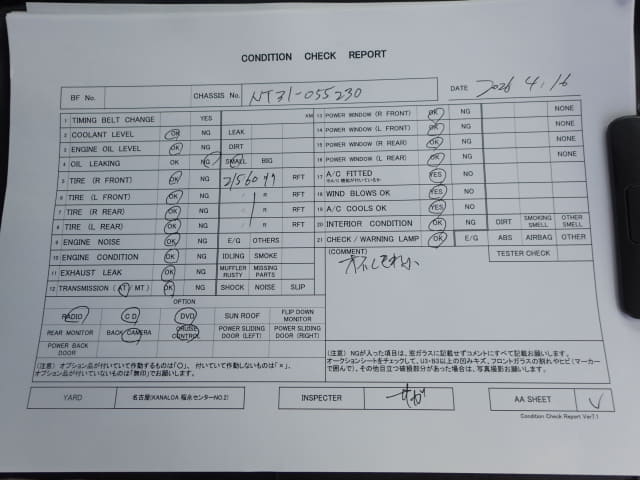 CONDITION CHECK REPORT
BF No. CHASSIS No. NT31-055230 DATE 2026 4.16
1 TIMING BELT CHANGE YES KM
2 COOLANT LEVEL OK NG LEAK
3 ENGINE OIL LEVEL OK NG DIRT
4 OIL LEAKING OK NG SMALL BIG
5 TIRE (R FRONT) OK NG RFT
6 TIRE (L FRONT) OK NG R RFT
7 TIRE (R REAR) OK NG R RFT
8 TIRE (L REAR) OK NG R RFT
9 ENGINE NOISE OK NG E/G OTHERS
10 ENGINE CONDITION OK NG IDLING SMOKE
11 EXHAUST LEAK OK NG MUFFLER RUSTY MISSING PARTS
12 TRANSMISSION (AT/ MT) OK NG SHOCK NOISE SLIP
13 POWER WINDOW (R FRONT) OK NG NONE
14 POWER WINDOW (L FRONT) OK NG NONE
15 POWER WINDOW (R REAR) OK NG NONE
16 POWER WINDOW (L REAR) OK NG NONE
17 A/C FITTED YES NO
18 WIND BLOWS OK YES NO
19 A/C COOLS OK YES NO
20 INTERIOR CONDITION OK NG DIRT SMOKING SMELL OTHER SMELL
21 CHECK / WARNING LAMP OK E/G ABS AIRBAG OTHER
(COMMENT) TESTER CHECK
OPTION
RADIO CD DVD SUN ROOF FLIP DOWN MONITOR
REAR MONITOR BACK CAMERA CRUISE CONTROL POWER SLIDING DOOR (LEFT) POWER SLIDING DOOR (RIGHT)
POWER BACK DOOR
(注意) オプション品が付いていて作動するものは「〇」、 付いていて作動しないものは「×」、
オプション品が付いていないものは「無印」でお願いします。
(注意) NGが入った項目は、窓ガラスに記載せずコメントにすべて記載お願いします。
オークションシートをチェックして、U3・B3以上の凹みキズ、フロントガラスの割れやヒビ(マーカー
で囲んで)、その他目立つ破損部分があった場合は、写真撮影お願いします。
YARD 名古屋(KANALOA 稲永センターNO.2) INSPECTER AA SHEET V
Condition Check Report Ver7.1